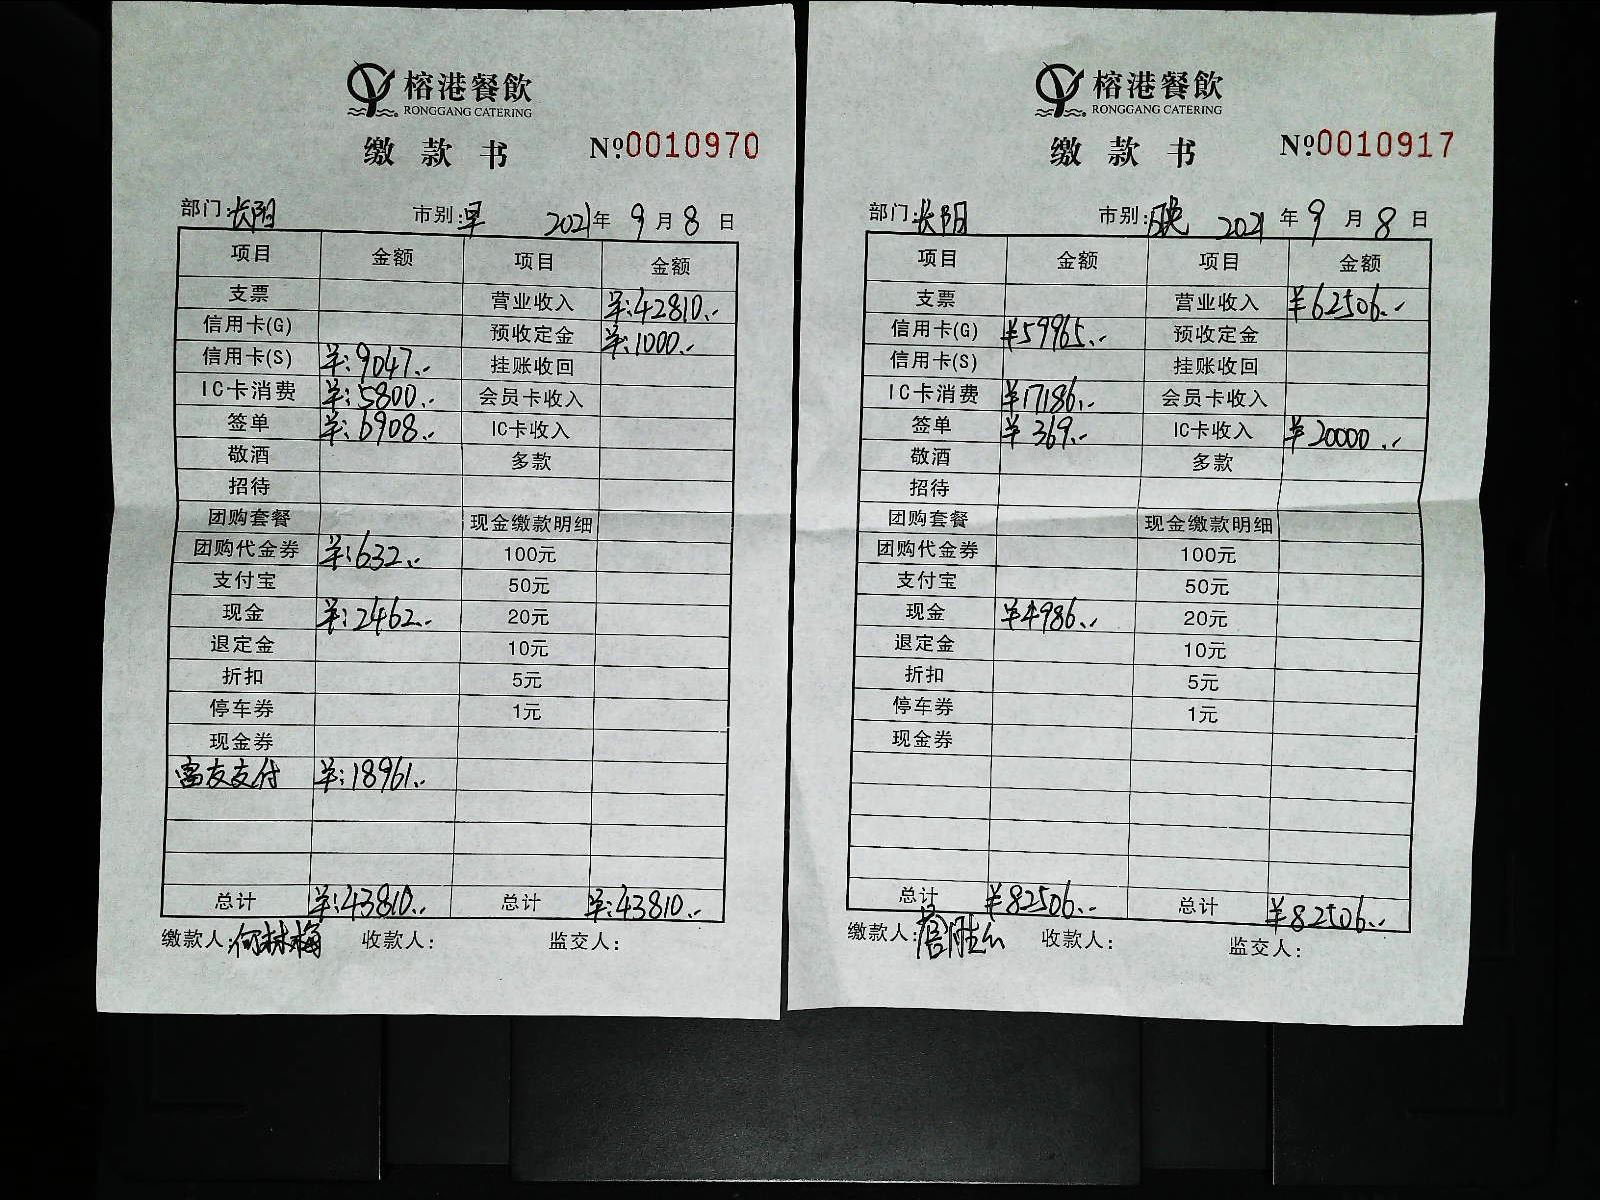 榕港餐飲
RONGGANG CATERING
缴款书 Nº:0010970
部门:长阳 市别:早 2021年9月8日
项目 金额 项目 金额
支票 营业收入 ¥:42810.-
信用卡(G) 预收定金 ¥:1000.-
信用卡(S) ¥:9047.- 挂账收回
IC卡消费 ¥:5800.- 会员卡收入
签单 ¥:6908.- IC卡收入
敬酒 多款
招待
团购套餐 现金缴款明细
团购代金券 ¥:632.- 100元
支付宝 50元
现金 ¥:2462.- 20元
退定金 10元
折扣 5元
停车券 1元
现金券
富友支付 ¥:18961.-
总计 ¥:43810.- 总计 ¥:43810.-
缴款人:何林梅 收款人: 监交人:
榕港餐飲
RONGGANG CATERING
缴款书 Nº:0010917
部门:长阳 市别:晚 2021年9月8日
项目 金额 项目 金额
支票 营业收入 ¥62506.-
信用卡(G) ¥59965.- 预收定金
信用卡(S) 挂账收回
IC卡消费 ¥17186.- 会员卡收入
签单 ¥369.- IC卡收入 ¥20000.-
敬酒 多款
招待
团购套餐 现金缴款明细
团购代金券 100元
支付宝 50元
现金 ¥4986.- 20元
退定金 10元
折扣 5元
停车券 1元
现金券
总计 ¥82506.- 总计 ¥82506.-
缴款人: 收款人: 监交人: